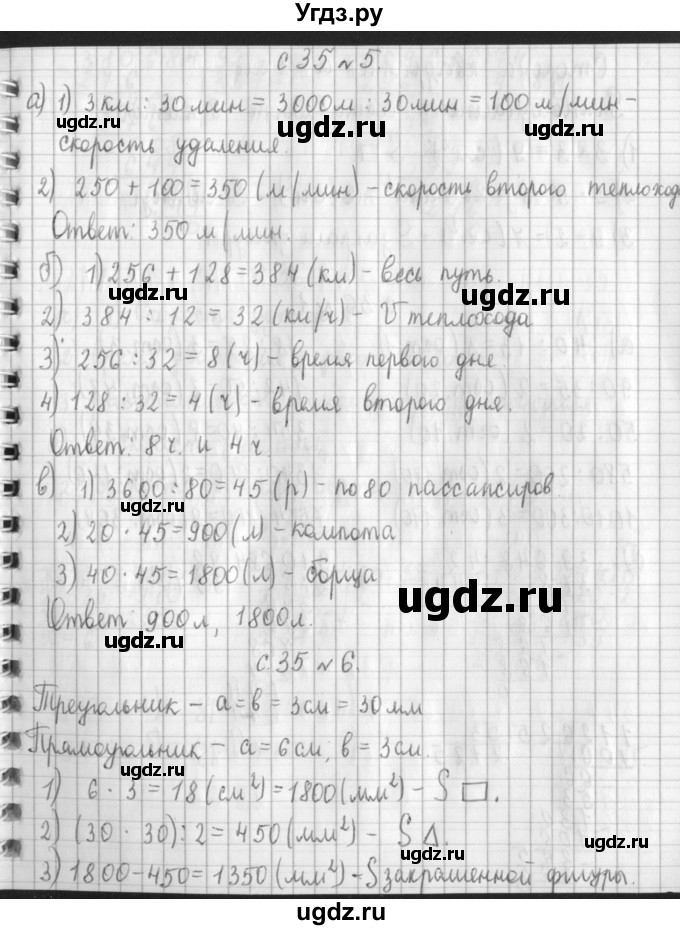 Угдз.ру
с 35 № 5.
а) 1) 3 км : 30 мин = 3000 м : 30 мин = 100 м/мин -
ugdz.ru ugdz.ru ugdz.ru
скорость удаления.
2) 250 + 100 = 350 (м/мин) - скорость второго теплохода
Ответ: 350 м/мин.
б) 1) 256 + 128 = 384 (км) - весь путь.
ugdz.ru ugdz.ru
2) 384 : 12 = 32 (км/ч) - V теплохода
3) 256 : 32 = 8 (ч) - время первого дне.
4) 128 : 32 = 4 (ч) - время второго дня.
Ответ: 8 ч. и 4 ч.
в) 1) 3600 : 80 = 45 (р) - по 80 пассансиров
ugdz.ru
2) 20 · 45 = 900 (л) - компота
3) 40 · 45 = 1800 (л) - борща
ugdz.ru
Ответ: 900 л, 1800 л.
ugdz.ru
с. 35 № 6.
Треугольник - a = b = 3 см = 30 мм
Прямоугольник - a = 6 см; b = 3 см.
ugdz.ru
1) 6 · 3 = 18 (см²) = 1800 (мм²) - S □.
2) (30 · 30) : 2 = 450 (мм²) - S Δ.
ugdz.ru
3) 1800 - 450 = 1350 (мм²) - S закрашенной фигуры.
ugdz.ru
ugdz.ru